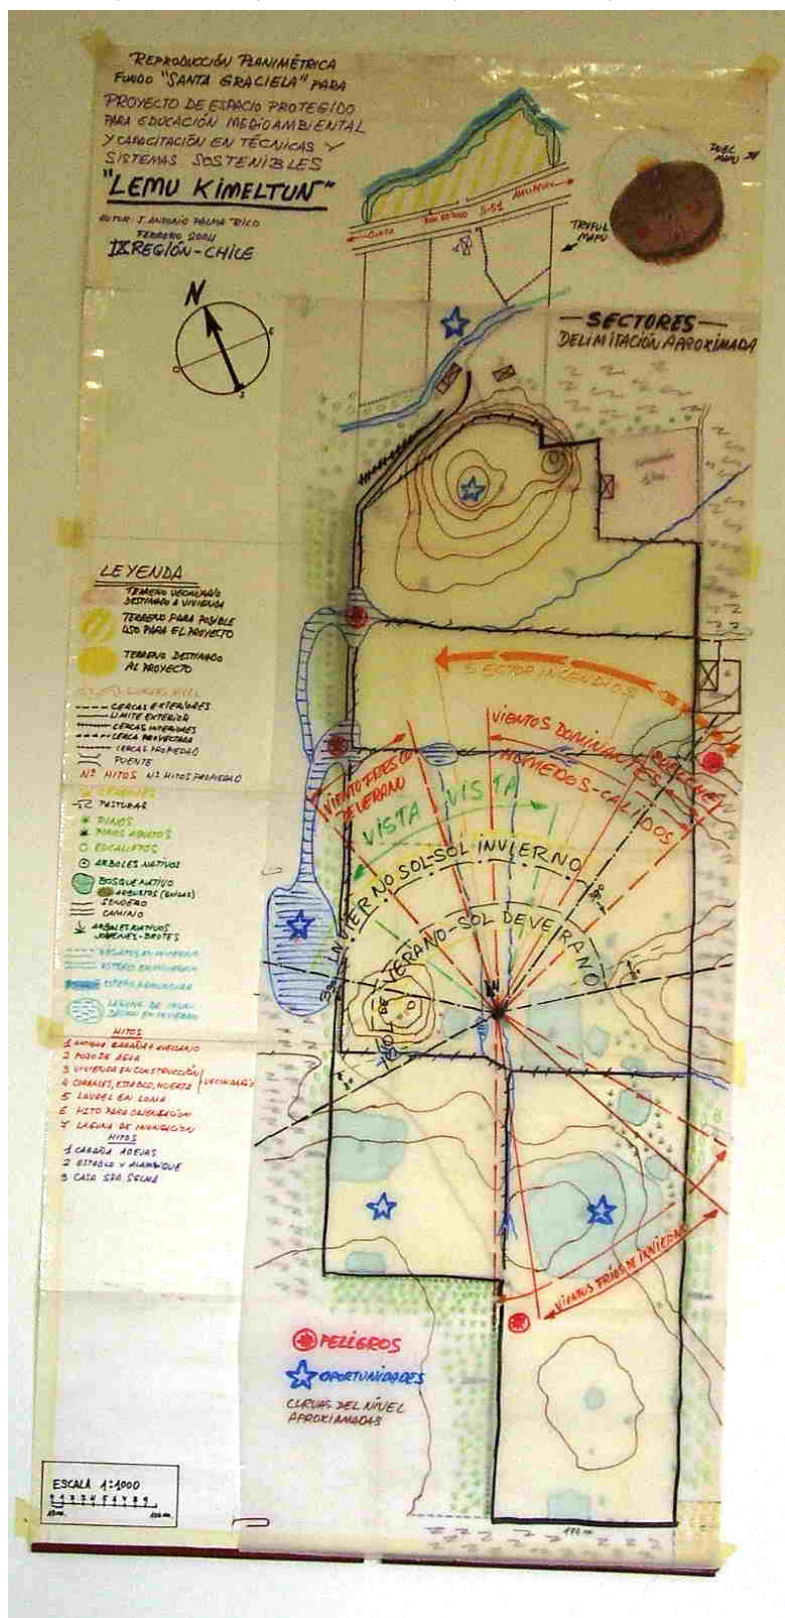 REPRODUCCIÓN PLANIMÉTRICA
FUNDO "SANTA GRACIELA" PARA
PROYECTO DE ESPACIO PROTEGIDO
PARA EDUCACIÓN MEDIOAMBIENTAL
Y CAPACITACIÓN EN TÉCNICAS Y
SISTEMAS SOSTENIBLES
"LEMU KIMELTUN"
AUTOR: J. ANTONIO PALMA TRICO
FEBRERO 2004
IX REGIÓN - CHILE
N
E
S
O
CUNCO
S-51
TRUFUL
MAPU
MAPU
— SECTORES —
DELIMITACIÓN APROXIMADA
LEYENDA
TERRENO VECINDARIO
DESTINADO A VIVIENDA
TERRENO PARA POSIBLE
USO PARA EL PROYECTO
TERRENO DESTINADO
AL PROYECTO
CURVAS NIVEL
CERCAS EXTERIORES
LIMITE EXTERIOR
CERCAS INTERIORES
CERCA PROYECTADA
CERCAS PROPIEDAD
PUENTE
Nº HITOS Nº HITOS PROPIEDAD
PASTURAS
PINOS
PINOS ABETOS
EUCALIPTOS
ARBOLES NATIVOS
BOSQUE NATIVO
ARBUSTOS (QUILAS)
SENDERO
CAMINO
ARBOLES NATIVOS
JOVENES-BROTES
LAGUNA DE INUN-
DACIÓN EN INVIERNO
HITOS
1 ANTIGUA CABAÑA + AVELLANO
2 POZO DE AGUA
3 VIVIENDA EN CONSTRUCCIÓN
4 CORRALES, ESTABLO, HUERTA
VECINDARIO
5 LAUREL EN LOMA
6 HITO PARA ORIENTACIÓN
7 LAGUNA DE INUNDACIÓN
HITOS
1 CABAÑA ABEJAS
2 ESTABLO Y ALAMBIQUE
3 CASA SRA. SELMA
SECTOR INCENDIOS
VIENTOS DOMINANTES
HÚMEDOS-CALIDOS
VIENTO FRESCO
DE VERANO
VISTA VISTA
INVIERNO SOL-SOL INVIERNO
SOL DE VERANO-SOL DE VERANO
VIENTOS FRÍOS DE INVIERNO
PELIGROS
OPORTUNIDADES
CURVAS DEL NIVEL
APROXIMADAS
ESCALA 1:1000